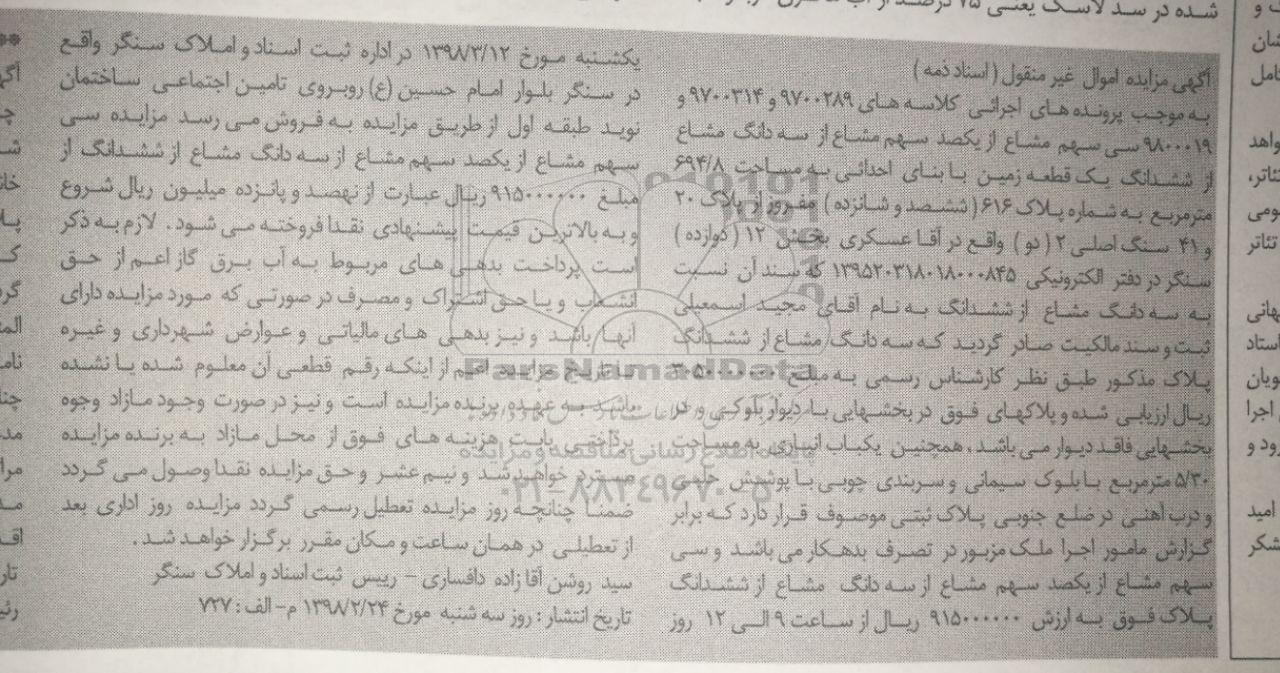 شده در سد لاسک یعنی ۷۵ درصد از آب
آگهی مزایده اموال غیر منقول (اسناد ذمه)
به موجب پرونده های اجرائی کلاسه های ۹۷۰۰۲۸۹ و ۹۷۰۰۳۱۴ و
۹۸۰۰۰۱۹ سی سهم مشاع از یکصد سهم مشاع از سه دانگ مشاع
از ششدانگ یک قطعه زمین با بنای احداثی به مساحت ۶۹۴/۸
مترمربع به شماره پلاک ۶۱۶ (ششصد و شانزده) مفروز از پلاک ۲۰
و ۴۱ سنگ اصلی ۲ (دو) واقع در آقا عسکری بخش ۱۲ (دوازده)
سنگر در دفتر الکترونیکی ۱۳۹۵۲۰۳۱۸۰۱۸۰۰۰۸۴۵ که سند آن نسبت
به سه دانگ مشاع از ششدانگ به نام آقای مجید اسمعیلی
ثبت و سند مالکیت صادر گردید که سه دانگ مشاع از ششدانگ
پلاک مذکور طبق نظر کارشناس رسمی به مبلغ
ریال ارزیابی شده و پلاکهای فوق در بخشهایی با دیوار بلوکی و در
بخشهایی فاقد دیوار می باشد، همچنین یکباب انباری به مساحت
۵/۳۰ مترمربع با بلوک سیمانی و سربندی چوبی با پوشش حلبی
و درب آهنی در ضلع جنوبی پلاک ثبتی موصوف قرار دارد که برابر
گزارش مامور اجرا ملک مزبور در تصرف بدهکار می باشد و سی
سهم مشاع از یکصد سهم مشاع از سه دانگ مشاع از ششدانگ
پلاک فوق به ارزش ۹۱۵۰۰۰۰۰۰ ریال از ساعت ۹ الی ۱۲ روز
یکشنبه مورخ ۱۳۹۸/۳/۱۲ در اداره ثبت اسناد و املاک سنگر واقع
در سنگر بلوار امام حسین (ع) روبروی تامین اجتماعی ساختمان
نوید طبقه اول از طریق مزایده به فروش می رسد مزایده سی
سهم مشاع از یکصد سهم مشاع از سه دانگ مشاع از ششدانگ از
مبلغ ۹۱۵۰۰۰۰۰۰ ریال عبارت از نهصد و پانزده میلیون ریال شروع
و به بالاترین قیمت پیشنهادی نقدا فروخته می شود. لازم به ذکر
است پرداخت بدهی های مربوط به آب برق گاز اعم از حق
انشعاب و یا حق اشتراک و مصرف در صورتی که مورد مزایده دارای
آنها باشد و نیز بدهی های مالیاتی و عوارض شهرداری و غیره
تا تاریخ مزایده اعم از اینکه رقم قطعی آن معلوم شده یا نشده
باشد به عهده برنده مزایده است و نیز در صورت وجود مازاد وجوه
پرداختی بابت هزینه های فوق از محل مازاد به برنده مزایده
مسترد خواهد شد و نیم عشر و حق مزایده نقدا وصول می گردد
ضمنا چنانچه روز مزایده تعطیل رسمی گردد مزایده روز اداری بعد
از تعطیلی در همان ساعت و مکان مقرر برگزار خواهد شد.
سید روشن آقا زاده دافساری - رییس ثبت اسناد و املاک سنگر
تاریخ انتشار: روز سه شنبه مورخ ۱۳۹۸/۲/۲۴ م-الف: ۷۲۷
ParsNamadData
پایگاه اطلاع رسانی مناقصه و مزایده
۰۲۱-۸۸۳۴۹۶۷۰-۵